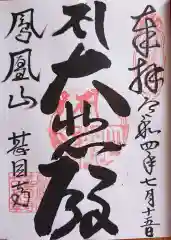 奉拝
令和四年七月十五日
大悲殿
鳳凰山
甚目寺